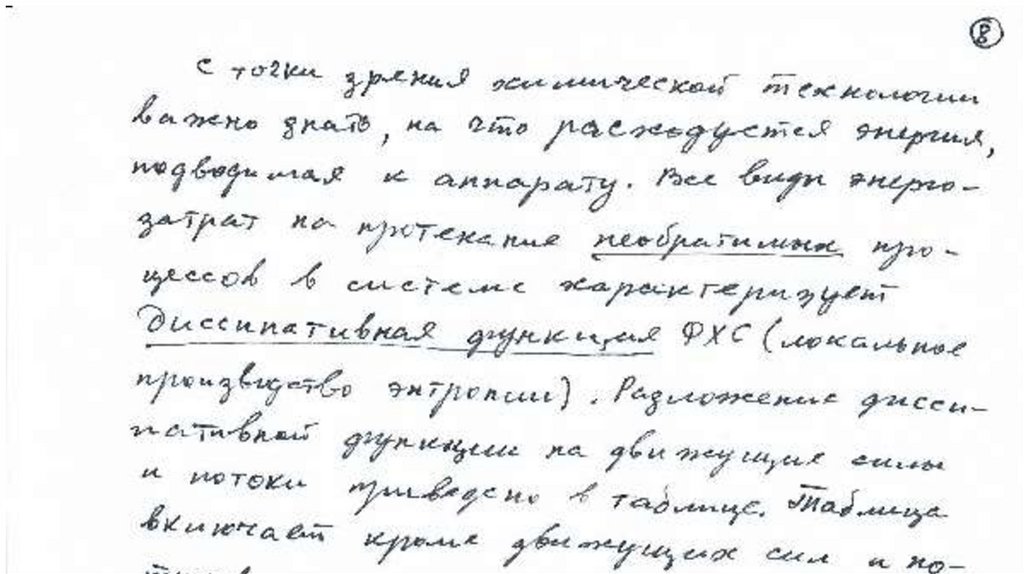 8
с точки зрения химической технологии
важно знать, на что расходуется энергия,
подводимая к аппарату. Все виды энерго-
затрат на протекание необратимых про-
цессов в системе характеризует
Диссипативная функция ФХС (локальное
производство энтропии). Разложение дисси-
пативной функции на движущие силы
и потоки приведено в таблице. Таблица
включает кроме движущих сил и по-